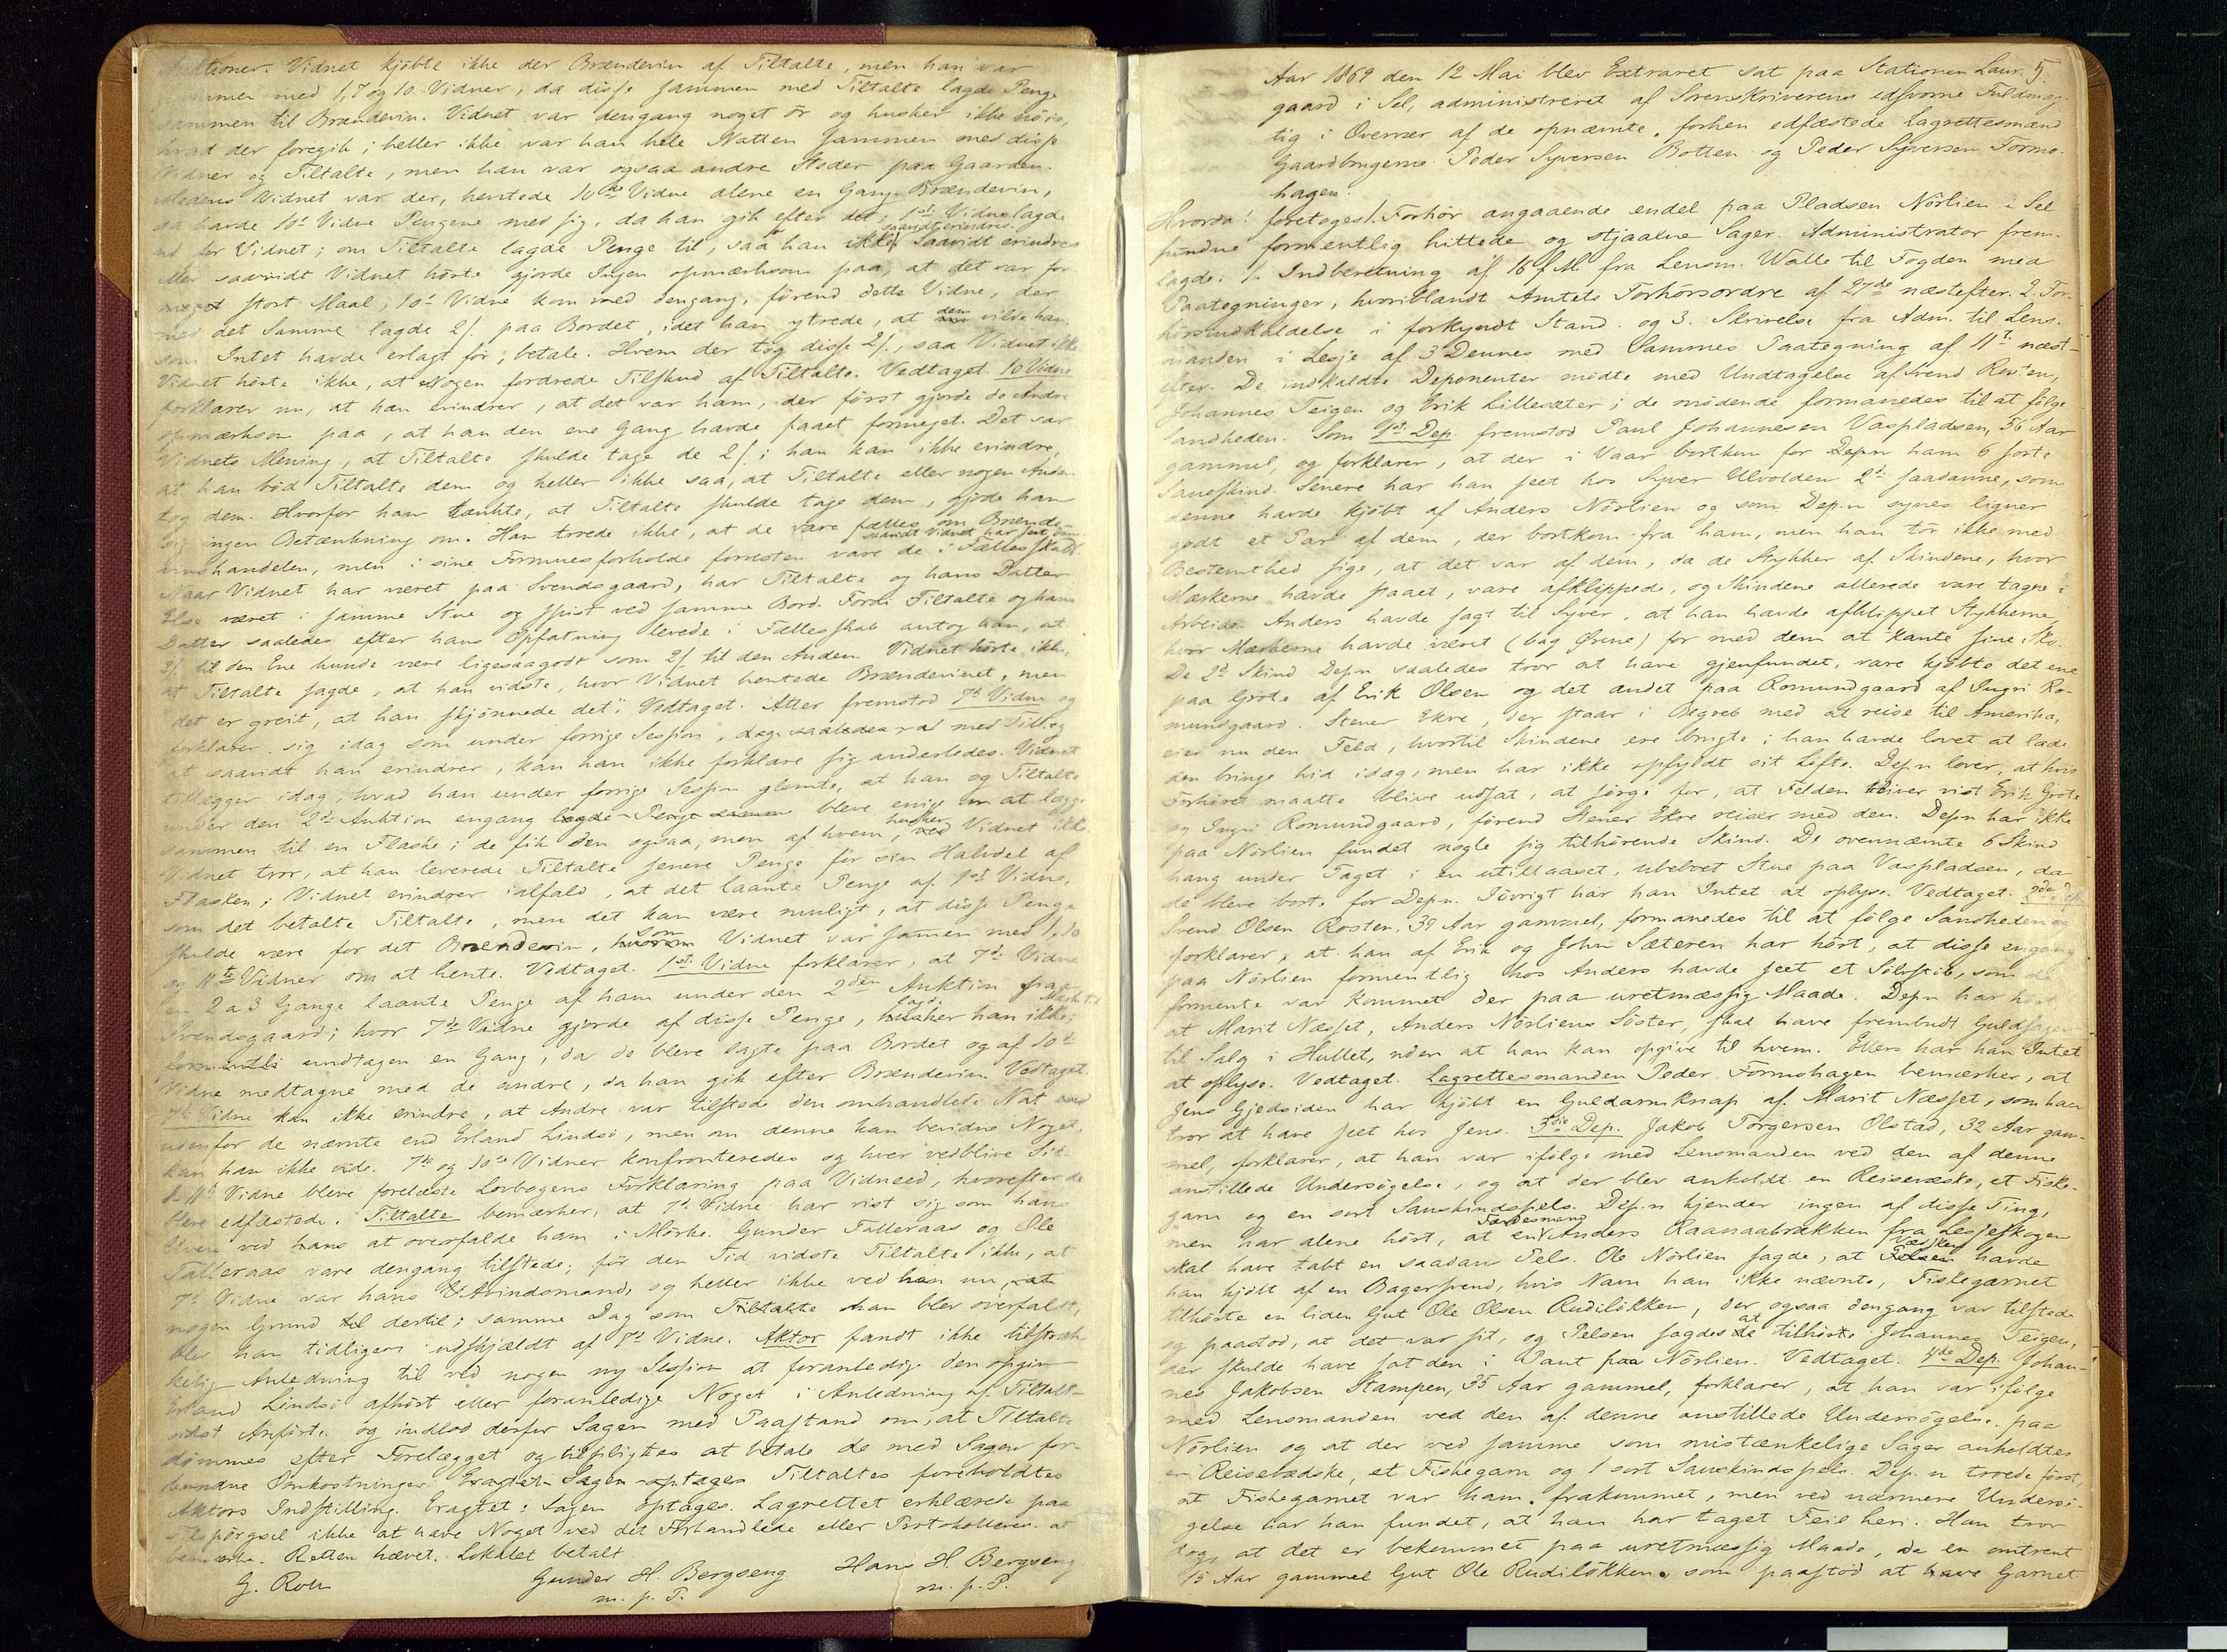 Vidnet kjöbte ikke der Brændevin af Tiltalte, men han var
sammen med 1, 7 og 10 Vidner, da disse sammen med Tiltalte lagde Penge
sammen til Brændevin. Vidnet var dengang noget ör og husker ikke nöie,
hvad der foregik; heller ikke var han hele Natten sammen med disse
Vidner og Tiltalte, men han var ogsaa andre Steder paa Gaarden.
Medens Vidnet var der, hentede 10de Vidne alene en Gang Brændevin,
da havde 10de Vidne Pengene med sig, da han gik efter det; 1st Vidne lagde
ud for Vidnet; om Tiltalte lagde Penge til, saa han ikke saavidt erindres
eller saavidt Vidnet hörte gjorde Ingen opmærksom paa, at det var for
noget stort Maal, 10de Vidne kom med dengang, förend dette Vidne, der
med det Samme lagde 2/ paa Bordet, idet han ytrede, at den vilde han,
som Intet havde erlagt för, betale. Hvem der tog disse 2/, saa Vidnet ikke
Vidnet hörte ikke, at Nogen fordrede Tilskud af Tiltalte. Vedtaget. 10 Vidne
forklarer nu, at han erindrer, at det var ham, der först gjorde de Andre
opmærksom paa, at han den ene Gang havde faaet formeget. Det var
Vidnets Mening, at Tiltalte skulde tage de 2/; han kan ikke erindre,
at han böd Tiltalte dem og heller ikke saa, at Tiltalte eller nogen Anden
tog dem. Hvorfor han tænkte, at Tiltalte skulde tage dem, gjorde han
sig ingen Betænkning om. Han troede ikke, at de vare fælles om Brænde-
vinshandelen, men i sine Formuesforholde forresten vare de i Fællesskab
saavidt Vidnet har seet dem
Naar Vidnet har været paa Svendsgaard, har Tiltalte og hans Datter
Else været i samme Stue og spist ved samme Bord. Fordi Tiltalte og hans
Datter saaledes efter hans Opfatning levede i Fællesskab antog han, at
2/ til den Ene kunde være ligesaagodt som 2/ til den Anden. Vidnet hörte ikke,
at Tiltalte sagde, at han vidste, hvor Vidnet hentede Brændevinet, men
"det er greit, at han skjönnede det". Vedtaget. Atter fremstod 7de Vidne og
forklarer sig idag som under forrige Session, med Tillæg
at saavidt han erindrer, kan han ikke forklare sig anderledes. Vidnet
tillægger idag, hvad han under forrige Session glemte, at han og Tiltalte
under den 2den Auktion engang bleve enige om at lægge
sammen til en Flaske; de fik den ogsaa, men af hvem, husker Vidnet ikke
Vidnet tror, at han leverede Tiltalte senere Penge for sin Halvdel af
Flasken; Vidnet erindrer ialfald, at det laante Penge af 1st Vidne,
som det betalte Tiltalte, men det kan være muligt, at disse Penge
skulde være for det Brændevin, som Vidnet var sammen med 1, 10
og 11te Vidner om at hente. Vedtaget. 1st Vidne forklarer, at 7de Vidne
en 2 a 3 Gange laante Penge af ham under den 2den Auktion paa
Svendsgaard; hvor 7de Vidne gjorde af disse Penge, lagde han ikke
undtagen en Gang, da de bleve lagte paa Bordet og af 10de
Vidne medtagne med de andre, da han gik efter Brændevin. Vedtaget.
7de Vidne kan ikke erindre, at Andre var tilstede den omhandlede Nat
udenfor de nævnte end Erland Lindsö, men om denne kan bevidne Noget,
kan han ikke vide. 7de og 10de Vidner konfronteredes og hver vedblive Sit.
De 11te Vidne bleve forelæste Lovbogens Forklaring paa Vidneed, hvorefter de
bleve edfæstede. Tiltalte bemærker, at 7de Vidne har vist sig som hans
Uven ved at overfalde ham i Mörke. Gunder Talleraas og Ole
Talleraas vare dengang tilstede; för den Tid vidste Tiltalte ikke, at
7de Vidne var hans Avindsmand, og heller ikke ved han nu
nogen Grund dertil; samme Dag som Tiltalte blev overfaldt,
blev han tidligere udskjældt af 7de Vidne. Aktor fandt ikke tilstræk-
kelig Anledning til ved nogen ny Session at foranledige den opgivne
Erland Lindsö afhört eller foranledige Noget i Anledning af Tiltaltes
sidst Anförte og indlod derfor Sagen med Paastand om, at Tiltalte
dömmes efter Forelægget og tilpligtes at betale de med Sagen for-
bundne Omkostninger. Eragtet Sagen optages Tiltaltes foreholdtes
Aktors Indstilling. Eragtet: Sagen optages. Lagrettet erklærede paa
Tilspörgsel ikke at have Noget ved det Forhandlede eller Protokollen at
bemærke. Retten hævet. Lokalet betalt
G. Roll Gunder H. Bergseng Hans H. Bergseng
m. p. P. m. p. P.
5.
Aar 1869 den 12 Mai blev Extraret sat paa Stationen Laur-
gaard i Sel, administreret af Sorenskriverens edsvorne Fuldmæg-
tig i Overvær af de opnævnte, forhen edfæstede Lagrettesmænd
Gaardbrugerne Peder Syversen Botten og Peder Syversen Formo-
hagen.
Hvorda! foretoges! Forhör angaaende endel paa Pladsen Nörlien i Sel
fundne formentlig hittede og stjaalne Sager. Administrator frem-
lagde: 1. Indberetning af 16 f. M. fra Lensm. Walle til Fogden med
Paategninger, hvoriblandt Amtets Forhörsordre af 27de næstefter. 2. For-
hörsindkaldelse i forkyndt Stand. og 3. Skrivelse fra Adm. til Lens-
manden i Lesje af 3 Dennes med Sammes Paategning af 11te næst-
efter. De indkaldte Deponenter mödte med Undtagelse af Svend Rosten,
Johannes Teigen og Erik Lillesæter; de mödende formanedes til at fölge
Sandheden. Som 1st. Dep. fremstod Paul Johannesen Vaspladsen, 56 Aar
gammel, og forklarer, at der i Vaar bortkom for Depn ham 6 sorte
Saueskind. Senere har han seet hos Syver Ulvolden 2de saadanne, som
denne havde kjöbt af Anders Nörlien og som Dep.n synes ligner
godt et Par af dem, der bortkom fra ham, men han tör ikke med
Bestemthed sige, at det var af dem, da de Stykker af Skindene, hvor
Mærkerne havde staaet, vare afklippede, og Skindene allerede vare tagne i
Arbeide. Anders havde sagt til Syver, at han havde afklippet Stykkerne,
hvor Mærkerne havde været (bag Örene) for med dem at kante sine Sko.
De 2de Skind Depn saaledes tror at have gjenfundet, vare kjöbte det ene
paa Grote af Erik Olsen og det andet paa Romundgaard af Ingri Ro-
mundgaard. Stener Ekre, der staar i Begreb med at reise til Amerika,
eier nu den Feld, hvortil Skindene ere brugte; han havde lovet at lade
den bringe hid idag, men har ikke opfyldt sit Löfte. Depn lover, at hvis
Forhöret maatte blive udsat, at sörge for, at Felden bliver vist Erik Grote
og Ingri Romundgaard, förend Stener Ekre reiser med den. Depn har ikke
paa Nörlien fundet nogle sig tilhörende Skind. De ovennævnte 6 Skind
hang under Taget i en utillaaset, ubeboet Stue paa Vaspladsen, da
de bleve borte for Depn. Iövrigt har han Intet at oplyse. Vedtaget. 2den Dep.
Svend Olsen Rosten, 39 Aar gammel, formanedes til at fölge Sandheden og
forklarer, at han af Erik og John Sæteren har hört, at disse engang
paa Nörlien formentlig hos Anders havde seet et Sölvstöb, som de
formente var kommet der paa uretmæssig Maade. Depn har hört
at Marit Næsset, Anders Nörliens Söster, skal have frembudt Guldsager
til Salg i Hullet, uden at han kan opgive til hvem. Ellers har han Intet
at oplyse. Vedtaget. Lagrettesmanden Peder Formohagen bemærker, at
Jens Gjedsiden har kjöbt en Guldarmknap af Marit Næsset, som han
tror at have seet hos Jens. 3die Dep. Jakob Torgersen Olstad, 32 Aar gam-
mel, forklarer, at han var ifölge med Lensmanden ved den af denne
anstillede Undersögelse, og at der blev anholdt en Reisevæske, et Fiske-
garn og en sort Saueskindspels. Dep.n kjender ingen af disse Ting,
men har alene hört, at en Færdesmand Anders Raanaabrækken fra Lesjeskogen
skal have tabt en saadan Pels. Ole Nörlien sagde, at Væsken havde
han kjöbt af en Bagersvend, hvis Navn han ikke nævnte, Fiskegarnet
tilhörte en liden Gut Ole Olsen Rudilökken, der ogsaa dengang var tilstede
og paastod, at det var sit, og Pelsen sagdes at tilhöre Johannes Teigen,
der skulde have sat den i Pant paa Nörlien. Vedtaget. 4de Dep. Johan-
nes Jakobsen Stampen, 35 Aar gammel, forklarer, at han var ifölge
med Lensmanden ved den af denne anstillede Undersögelse paa
Nörlien og at der ved samme som mistænkelige Sager anholdtes
en Reisevædske, et Fiskegarn og 1 sort Saueskindspels. Dep.n troede först,
at Fiskegarnet var ham frakommet, men ved nærmere Undersö-
gelse har han fundet, at han har taget Feil heri. Han tror
dog, at det er bekommet paa uretmæssig Maade, da en omtrent
15 Aar gammel Gut Ole Rudilökken, som paastod at have Garnet